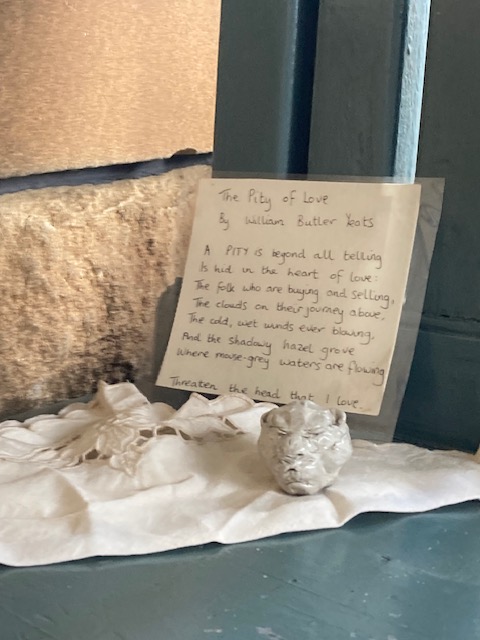 The Pity of Love
By William Butler Yeats
A PITY is beyond all telling
Is hid in the heart of love:
The folk who are buying and selling,
The clouds on their journey above,
The cold, wet winds ever blowing,
And the shadowy hazel grove
Where mouse-grey waters are flowing
Threaten the head that I love.